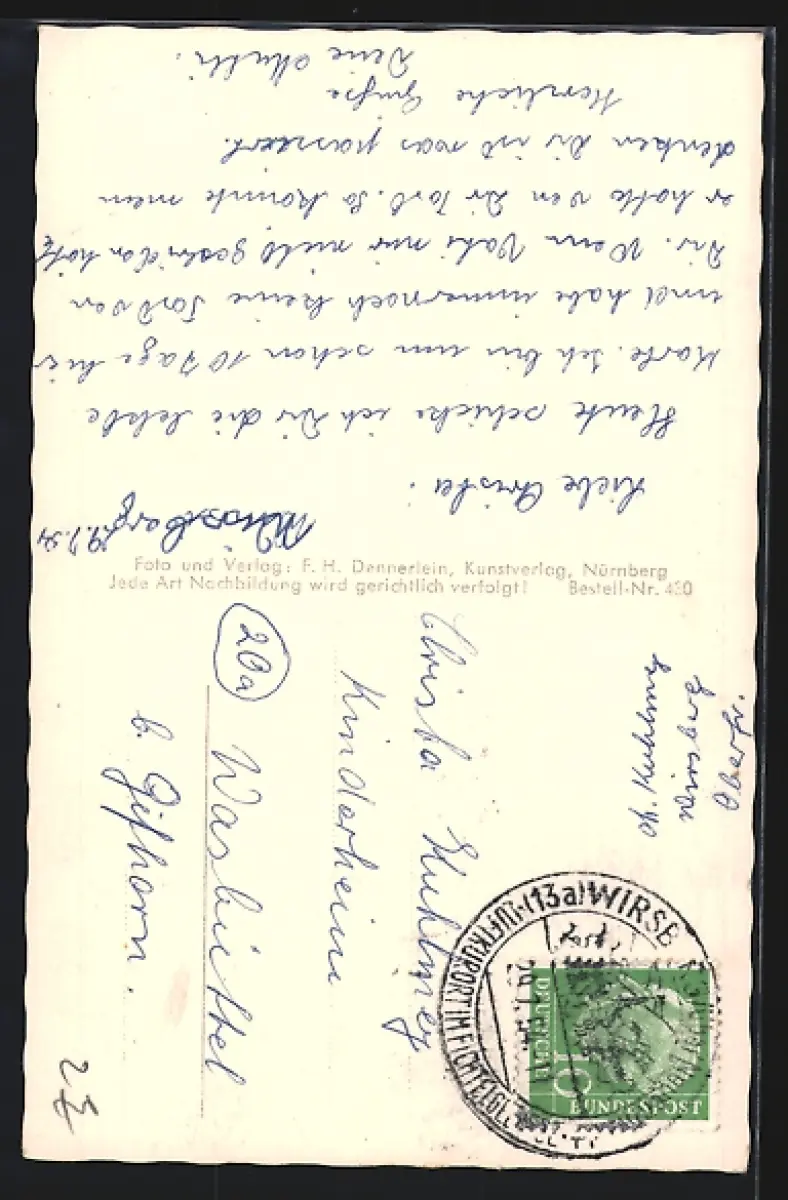 Wirsberg 29.7.54
Liebe Christa!
Heute schicke ich Dir die letzte
Karte. Ich bin nun schon 10 Tage hier
und habe immernoch keine Post von
Dir. Wenn Vati mir nicht geschrieben hätte
er hatte von Dir Post. So könnte man
denken Dir ist was passiert.
Herzliche Grüße
Deine Mutti.
Foto und Verlag: F. H. Dennerlein, Kunstverlag, Nürnberg
Jede Art Nachbildung wird gerichtlich verfolgt! Bestell-Nr. 430
Wirsberg
Oberfr.
(13a) WIRSB
LUFTKURORT IM FICHTELGEB
DEUTSCHE
BUNDESPOST
10
Christa
Kinderheim
(20a) Wasbüttel
b. Gifhorn.